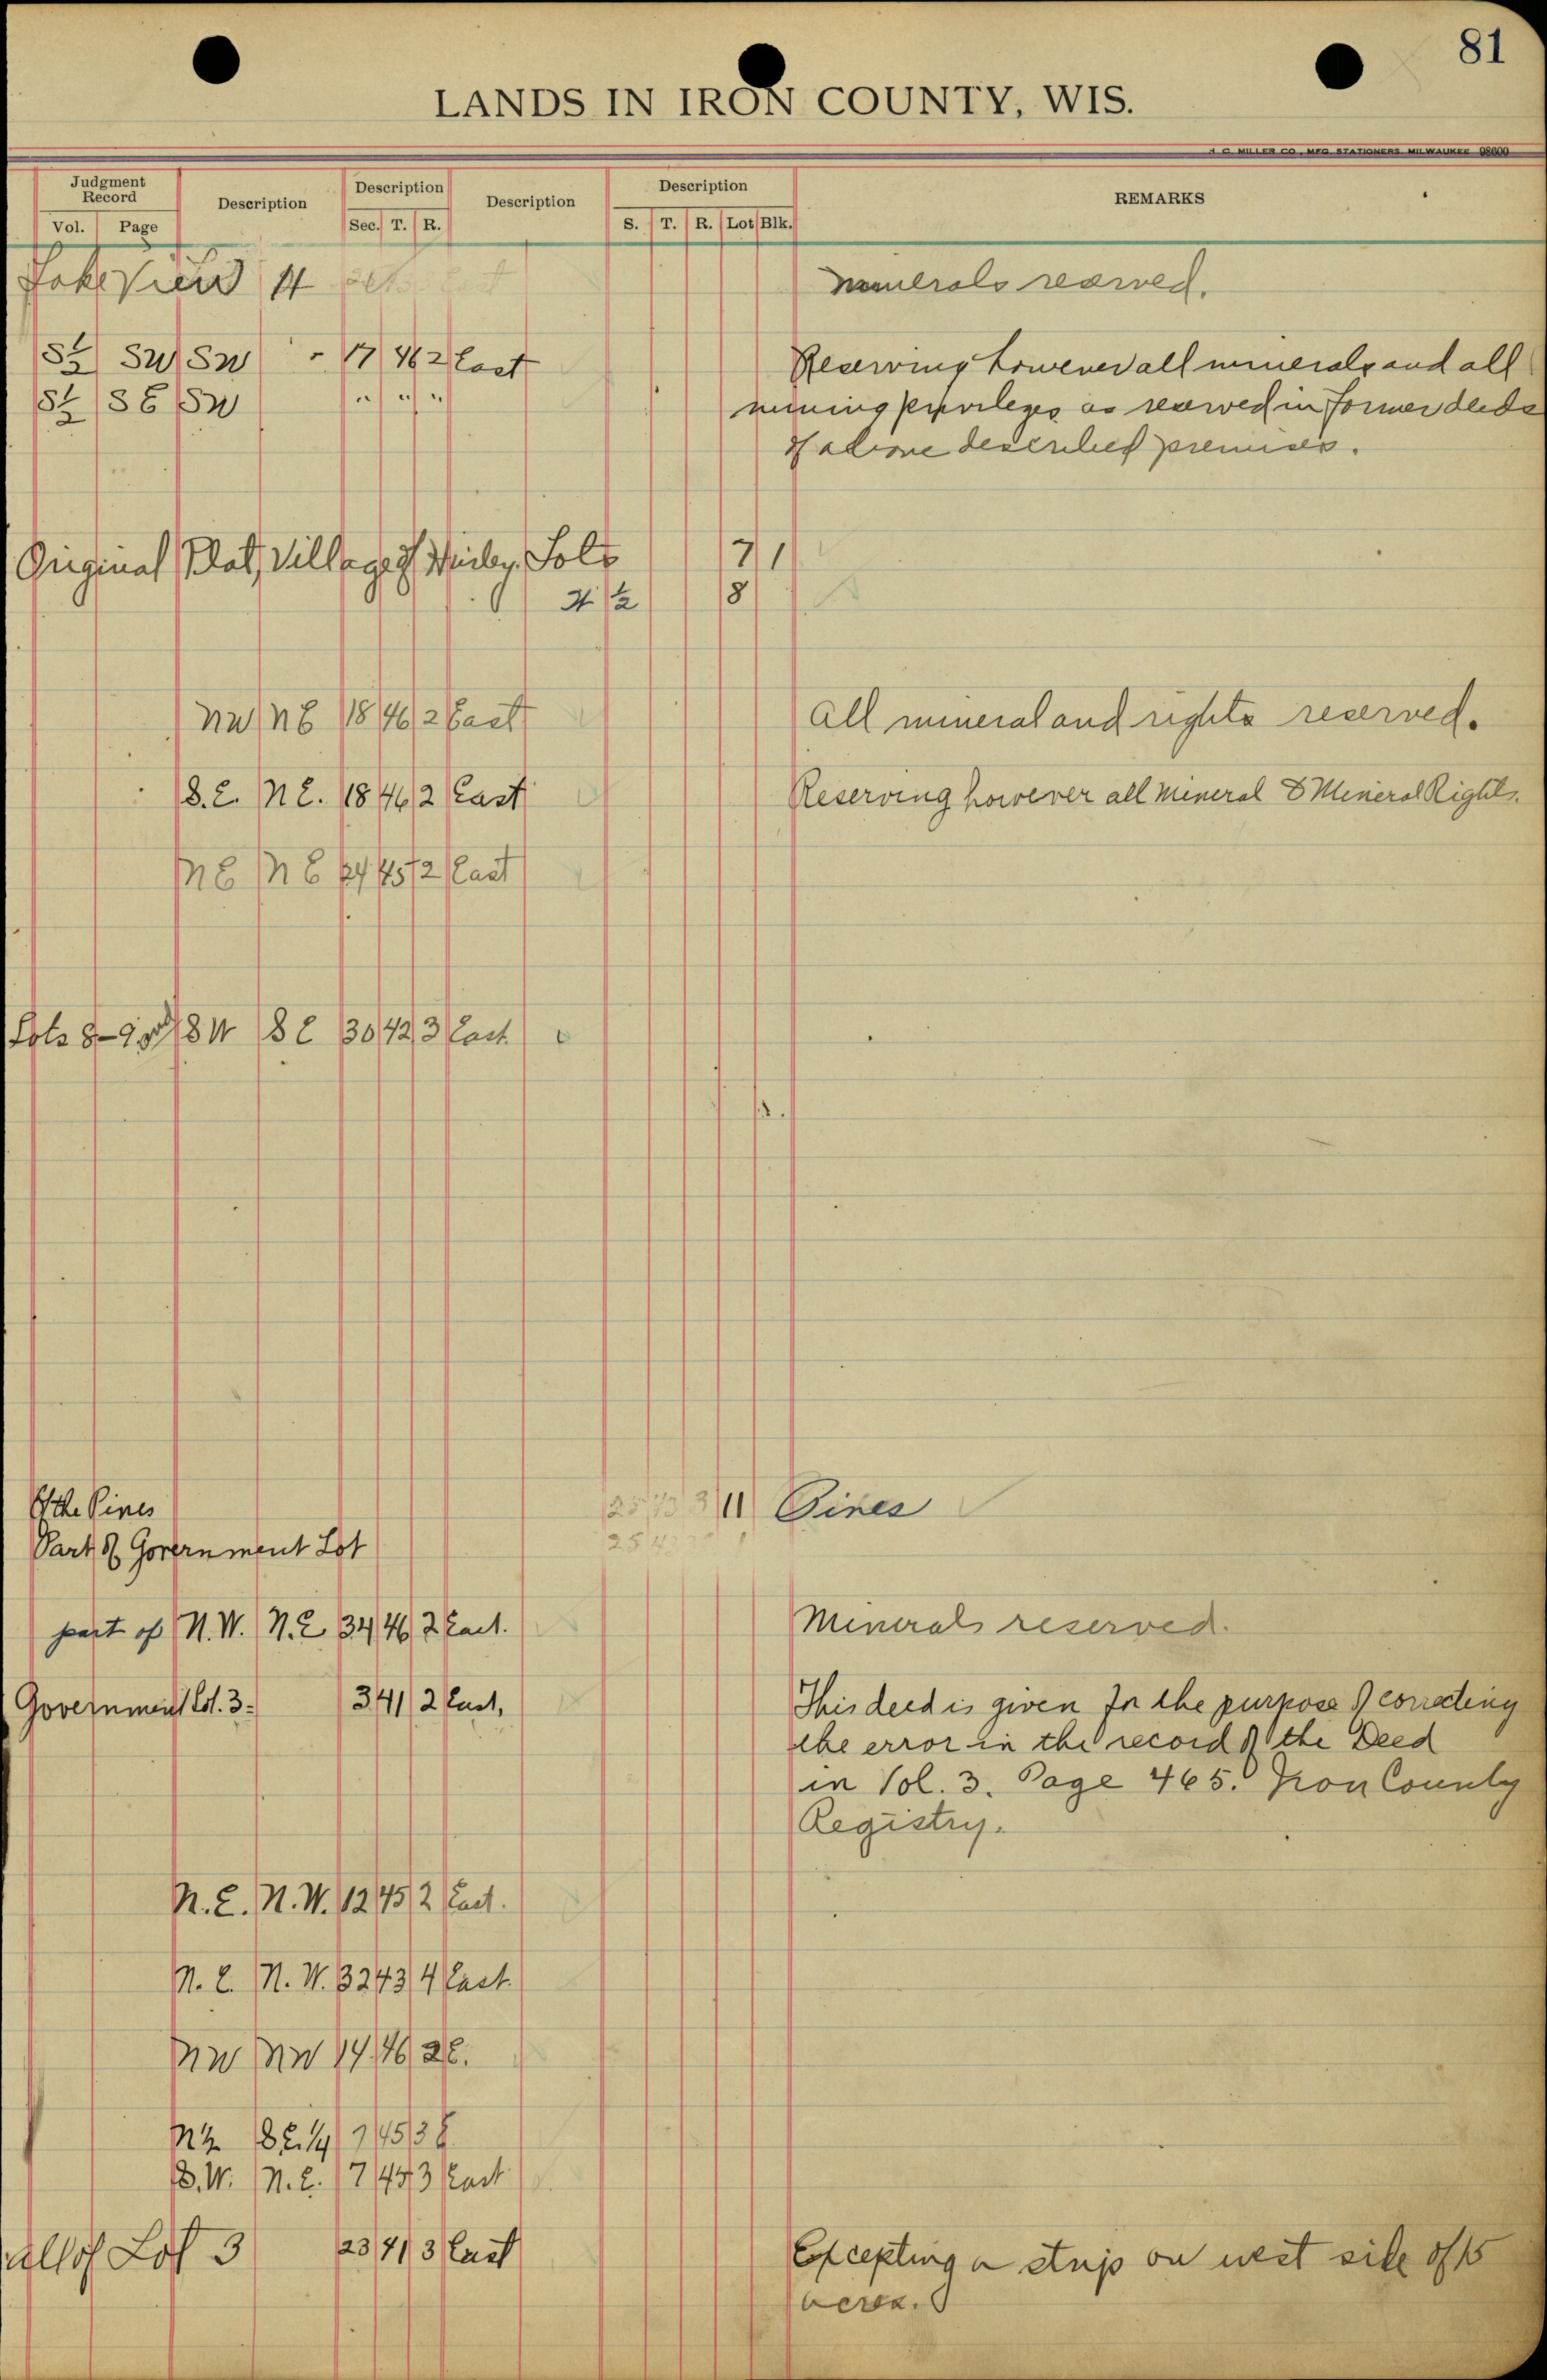 81
LANDS IN IRON COUNTY, WIS.
H. C. MILLER CO., MFG. STATIONERS, MILWAUKEE 98600
Judgment Record Description Description Description Description REMARKS
Vol. Page Sec. T. R. S. T. R. Lot Blk.
Lake View 11 minerals reserved.
S½ SW SW - 17 46 2 East Reserving however all minerals and all
S½ SE SW " " " mining privileges as reserved in former deeds
of above described premises.
Original Plat, Village of Hurley, Lots 7 1
½ 8
NW NE 18 46 2 East All mineral and rights reserved.
S.E. N.E. 18 46 2 East Reserving however all Mineral & Mineral Rights.
NE NE 24 45 2 East
Lots 8-9 and SW SE 30 42 3 East
Of the Pines 11 Pines
Part of Government Lot
part of N.W. N.E. 34 46 2 East. Minerals reserved.
Government Lot. 3- 3 41 2 East, This deed is given for the purpose of correcting
the error in the record of the Deed
in Vol. 3. Page 465. Iron County
Registry.
N.E. N.W. 12 45 2 East.
N.E. N.W. 32 43 4 East.
NW NW 14 46 2 E.
N½ SE¼ 7 45 3 E
S.W. N.E. 17 45 3 East
all of Lot 3 23 41 3 East Excepting a strip on west side of 15
acres.